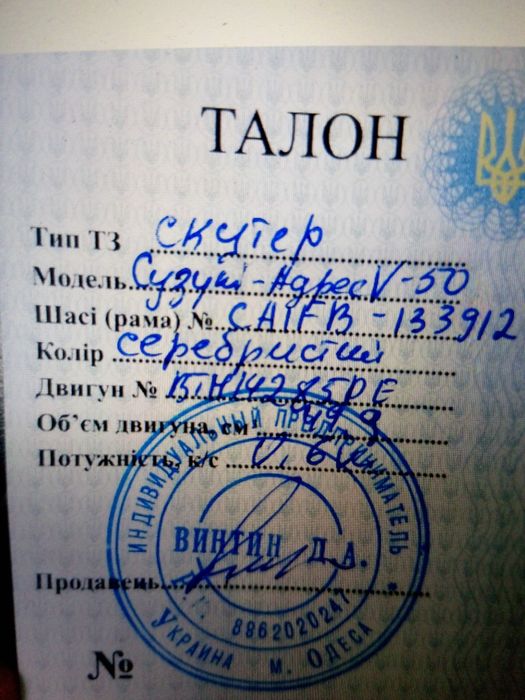 ТАЛОН
Тип ТЗ скутер
Модель Сузукі-Адрес V-50
Шасі (рама) № CA1FB-133912
Колір серебристий
Двигун №
Об'єм двигуна, см 49,9
Потужність, к/с
ИНДИВИДУАЛЬНЫЙ ПРЕДПРИНИМАТЕЛЬ
ВИНТИН Д.А.
Продавець
УКРАИНА м. ОДЕСА
№